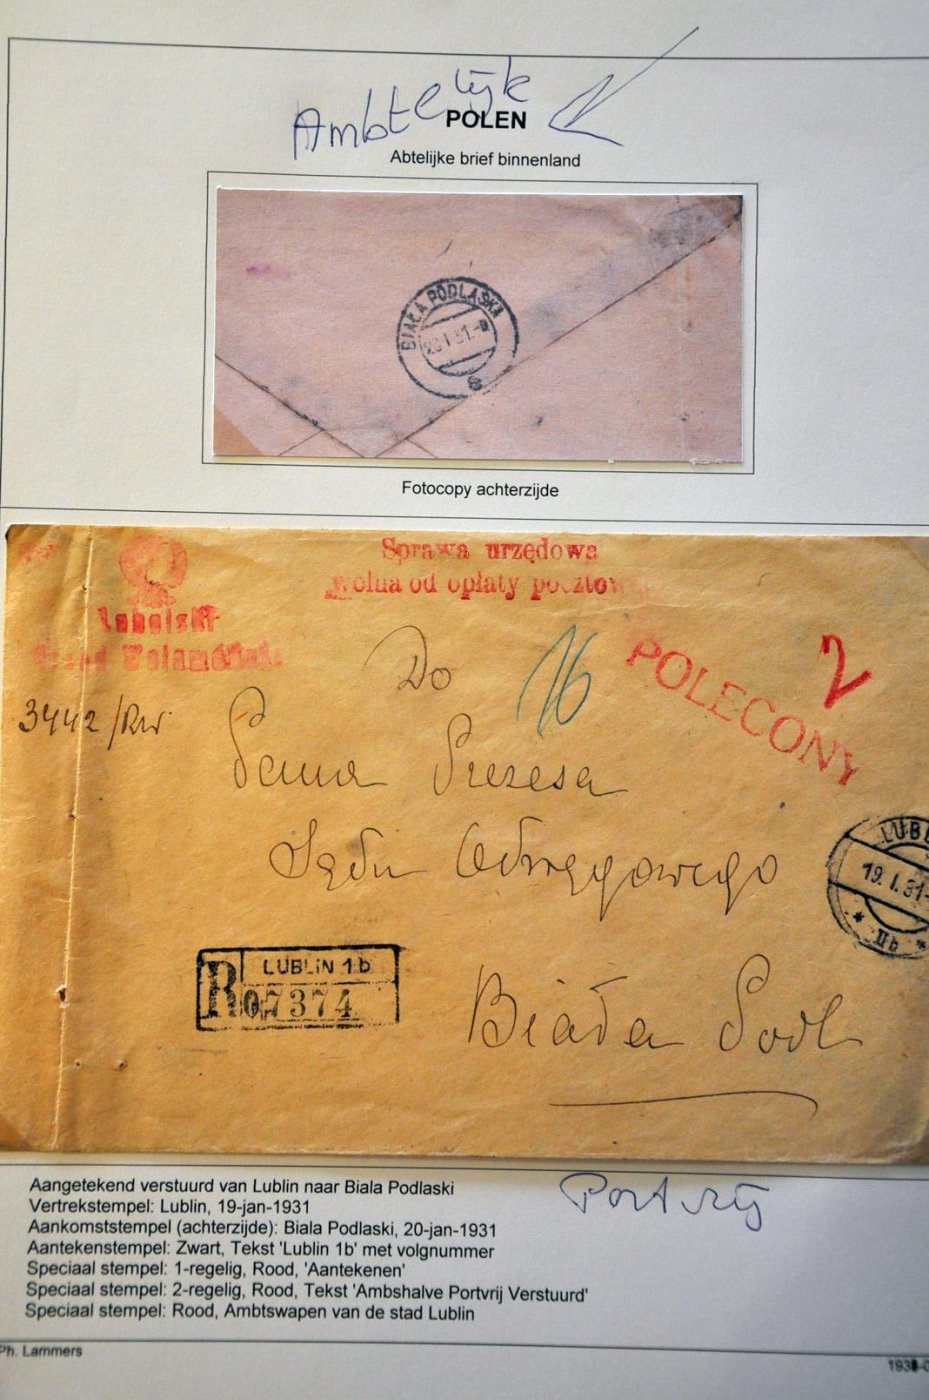 Ambtelijk
POLEN
Abtelijke brief binnenland
BIAŁA PODLASKA
20 I 31
Fotocopy achterzijde
Sprawa urzędowa
wolna od opłaty pocztowej
Lubelski
Do
16
POLECONY
2
3442/Rw
Pana Prezesa
Sądu Okręgowego
LUBL
19. I. 31
IIb
R
LUBLIN 1b
07374
Biała Podl
Aangetekend verstuurd van Lublin naar Biala Podlaski
Vertrekstempel: Lublin, 19-jan-1931
Aankomststempel (achterzijde): Biala Podlaski, 20-jan-1931
Aantekenstempel: Zwart, Tekst 'Lublin 1b' met volgnummer
Speciaal stempel: 1-regelig, Rood, 'Aantekenen'
Speciaal stempel: 2-regelig, Rood, Tekst 'Ambshalve Portvrij Verstuurd'
Speciaal stempel: Rood, Ambtswapen van de stad Lublin
Portvrij
Ph. Lammers